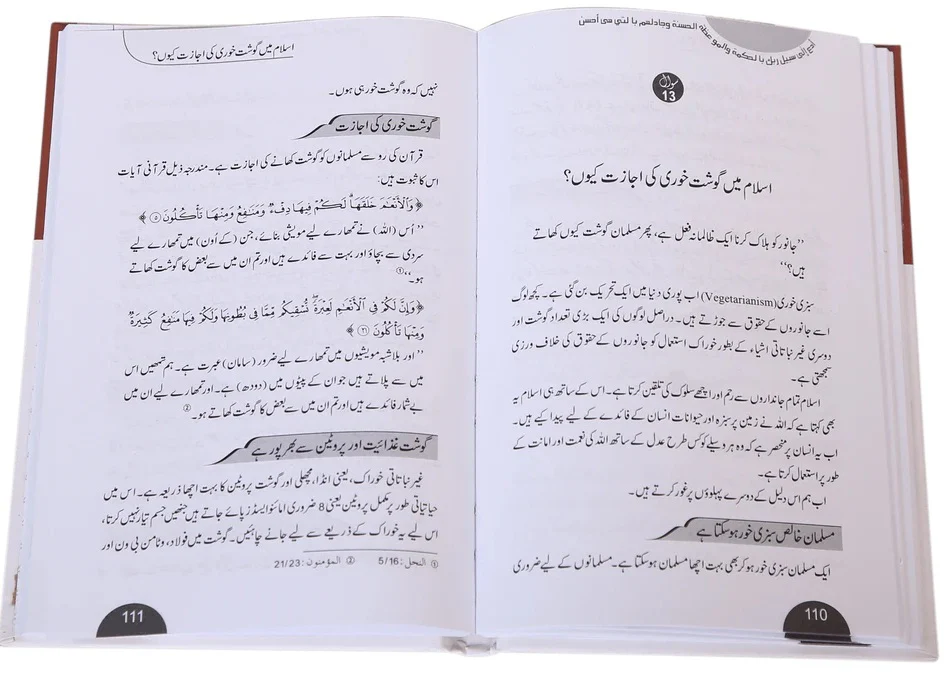 ادع إلى سبيل ربك بالحكمة والموعظة الحسنة وجادلهم بالتي هي أحسن
سوال
13
اسلام میں گوشت خوری کی اجازت کیوں؟
’’جانور کو ہلاک کرنا ایک ظالمانہ فعل ہے، پھر مسلمان گوشت کیوں کھاتے
ہیں؟‘‘
سبزی خوری (Vegetarianism) اب پوری دنیا میں ایک تحریک بن گئی ہے۔ کچھ لوگ
اسے جانوروں کے حقوق سے جوڑتے ہیں۔ دراصل لوگوں کی ایک بڑی تعداد گوشت اور
دوسری غیر نباتاتی اشیاء کے بطور خوراک استعمال کو جانوروں کے حقوق کی خلاف ورزی
سمجھتی ہے۔
اسلام تمام جانداروں سے رحم اور اچھے سلوک کی تلقین کرتا ہے۔ اس کے ساتھ ہی اسلام یہ
بھی کہتا ہے کہ اللہ نے زمین پر سبزہ اور حیوانات انسان کے فائدے کے لیے پیدا کیے ہیں۔
اب یہ انسان پر منحصر ہے کہ وہ ہر وسیلے کو کس طرح عدل کے ساتھ اللہ کی نعمت اور امانت کے
طور پر استعمال کرتا ہے۔
اب ہم اس دلیل کے دوسرے پہلوؤں پر غور کرتے ہیں۔
مسلمان خالص سبزی خور ہوسکتا ہے
ایک مسلمان سبزی خور ہو کر بھی بہت اچھا مسلمان ہوسکتا ہے۔ مسلمانوں کے لیے ضروری
110
اسلام میں گوشت خوری کی اجازت کیوں؟
نہیں کہ وہ گوشت خور ہی ہوں۔
گوشت خوری کی اجازت
قرآن کی رو سے مسلمانوں کو گوشت کھانے کی اجازت ہے۔ مندرجہ ذیل قرآنی آیات
اس کا ثبوت ہیں:
﴿وَٱلْأَنْعَـٰمَ خَلَقَهَا ۗ لَكُمْ فِيهَا دِفْءٌ وَمَنَـٰفِعُ وَمِنْهَا تَأْكُلُونَ ۝٥﴾
’’اُس (اللہ) نے تمھارے لیے مویشی بنائے، جن (کے اُون) میں تمھارے لیے
سردی سے بچاؤ اور بہت سے فائدے ہیں اور تم ان میں سے بعض کا گوشت کھاتے
ہو۔‘‘①
﴿وَإِنَّ لَكُمْ فِى ٱلْأَنْعَـٰمِ لَعِبْرَةً ۖ نُّسْقِيكُم مِّمَّا فِى بُطُونِهَا وَلَكُمْ فِيهَا مَنَـٰفِعُ كَثِيرَةٌ
وَمِنْهَا تَأْكُلُونَ ۝٢١﴾
’’اور بلاشبہ مویشیوں میں تمھارے لیے ضرور (سامان) عبرت ہے۔ ہم تمھیں اس
میں سے پلاتے ہیں جو ان کے پیٹوں میں (دودھ) ہے۔ اور تمھارے لیے ان میں
بے شمار فائدے ہیں اور تم ان میں سے بعض کا گوشت کھاتے ہو۔②
گوشت غذائیت اور پروٹین سے بھرپور ہے
غیر نباتاتی خوراک، یعنی انڈا، مچھلی اور گوشت پروٹین کا بہت اچھا ذریعہ ہے۔ اس میں
حیاتیاتی طور پر مکمل پروٹین یعنی 8 ضروری امائنو ایسڈز پائے جاتے ہیں جنھیں جسم تیار نہیں کرتا،
اس لیے یہ خوراک کے ذریعے سے لیے جانے چاہئیں۔ گوشت میں فولاد، وٹامن بی ون اور
① النحل: 5/16 ② المؤمنون: 21/23
111